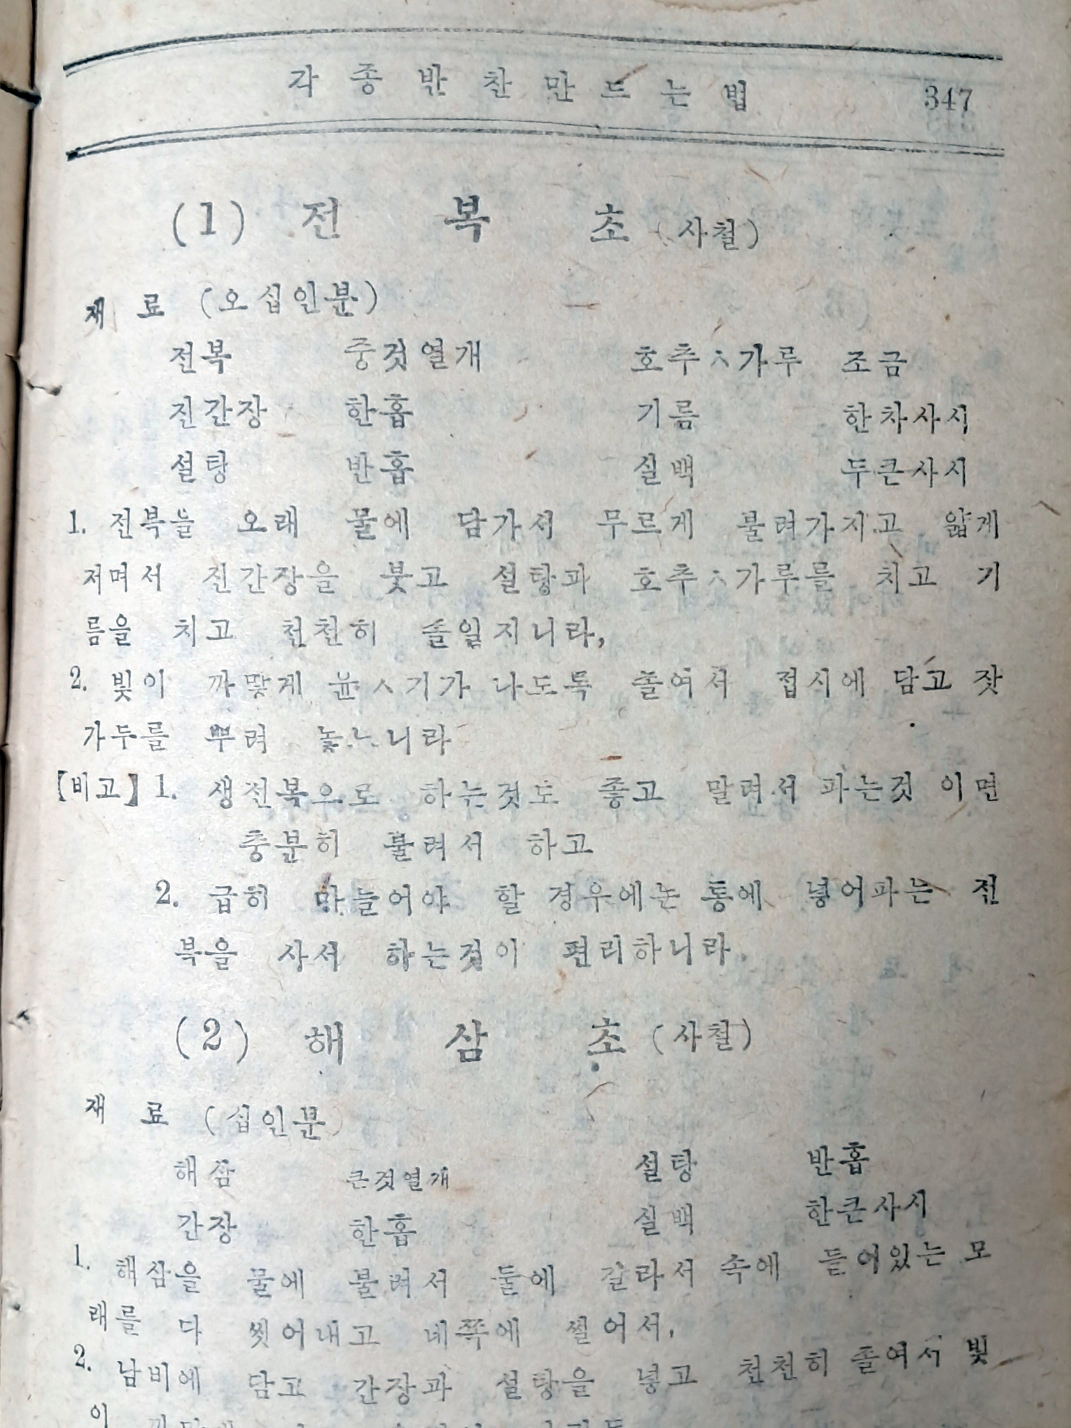 각종반찬만드는법 347
(1) 전 복 초 (사철)
재 료 (오십인분)
전복 중것열개 호추ㅅ가루 조금
진간장 한홉 기름 한차사시
설탕 반홉 실백 두큰사시
1. 전복을 오래 물에 담가서 무르게 불려가지고 얇게
저며서 진간장을 붓고 설탕과 호추ㅅ가루를 치고 기
름을 치고 천천히 졸일지니라,
2. 빛이 까맣게 윤ㅅ기가 나도록 졸여서 접시에 담고 잣
가루를 뿌려 놓느니라
【비고】 1. 생전복으로 하는것도 좋고 말려서 파는것 이면
충분히 불려서 하고
2. 급히 만들어야 할 경우에는 통에 넣어파는 전
복을 사서 하는것이 편리하니라.
(2) 해 삼 초 (사철)
재 료 (십인분)
해삼 큰것열개 설탕 반홉
간장 한홉 실백 한큰사시
1. 해삼을 물에 불려서 둘에 갈라서 속에 들어있는 모
래를 다 씻어내고 네쪽에 썰어서,
2. 남비에 담고 간장과 설탕을 넣고 천천히 졸여서 빛
이